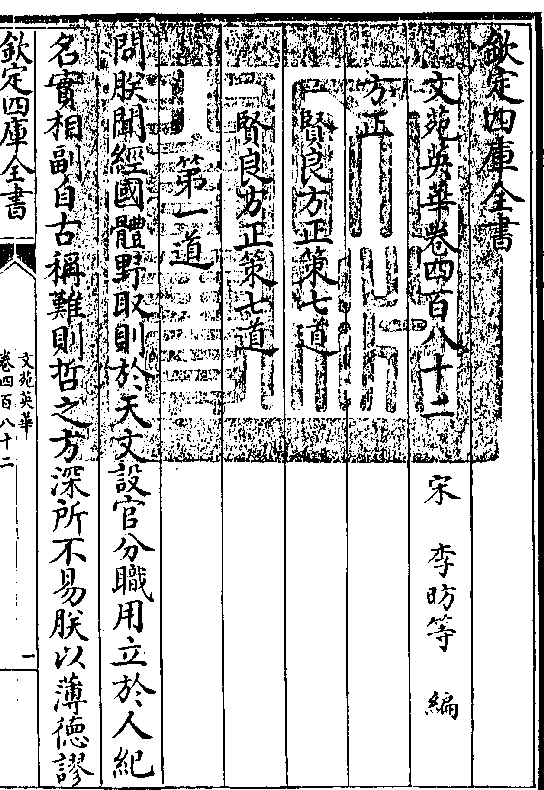 欽定四庫全書
文苑英華卷四百八十二
宋 李昉等 編
方正
賢良方正策七道
賢良方正策七道
第一道
問朕聞經國體野取則於天文設官分職用立於人紀
名實相副自古稱難則哲之方深所不易朕以薄德謬
欽定四庫全書
文苑英華
卷四百八十二
一